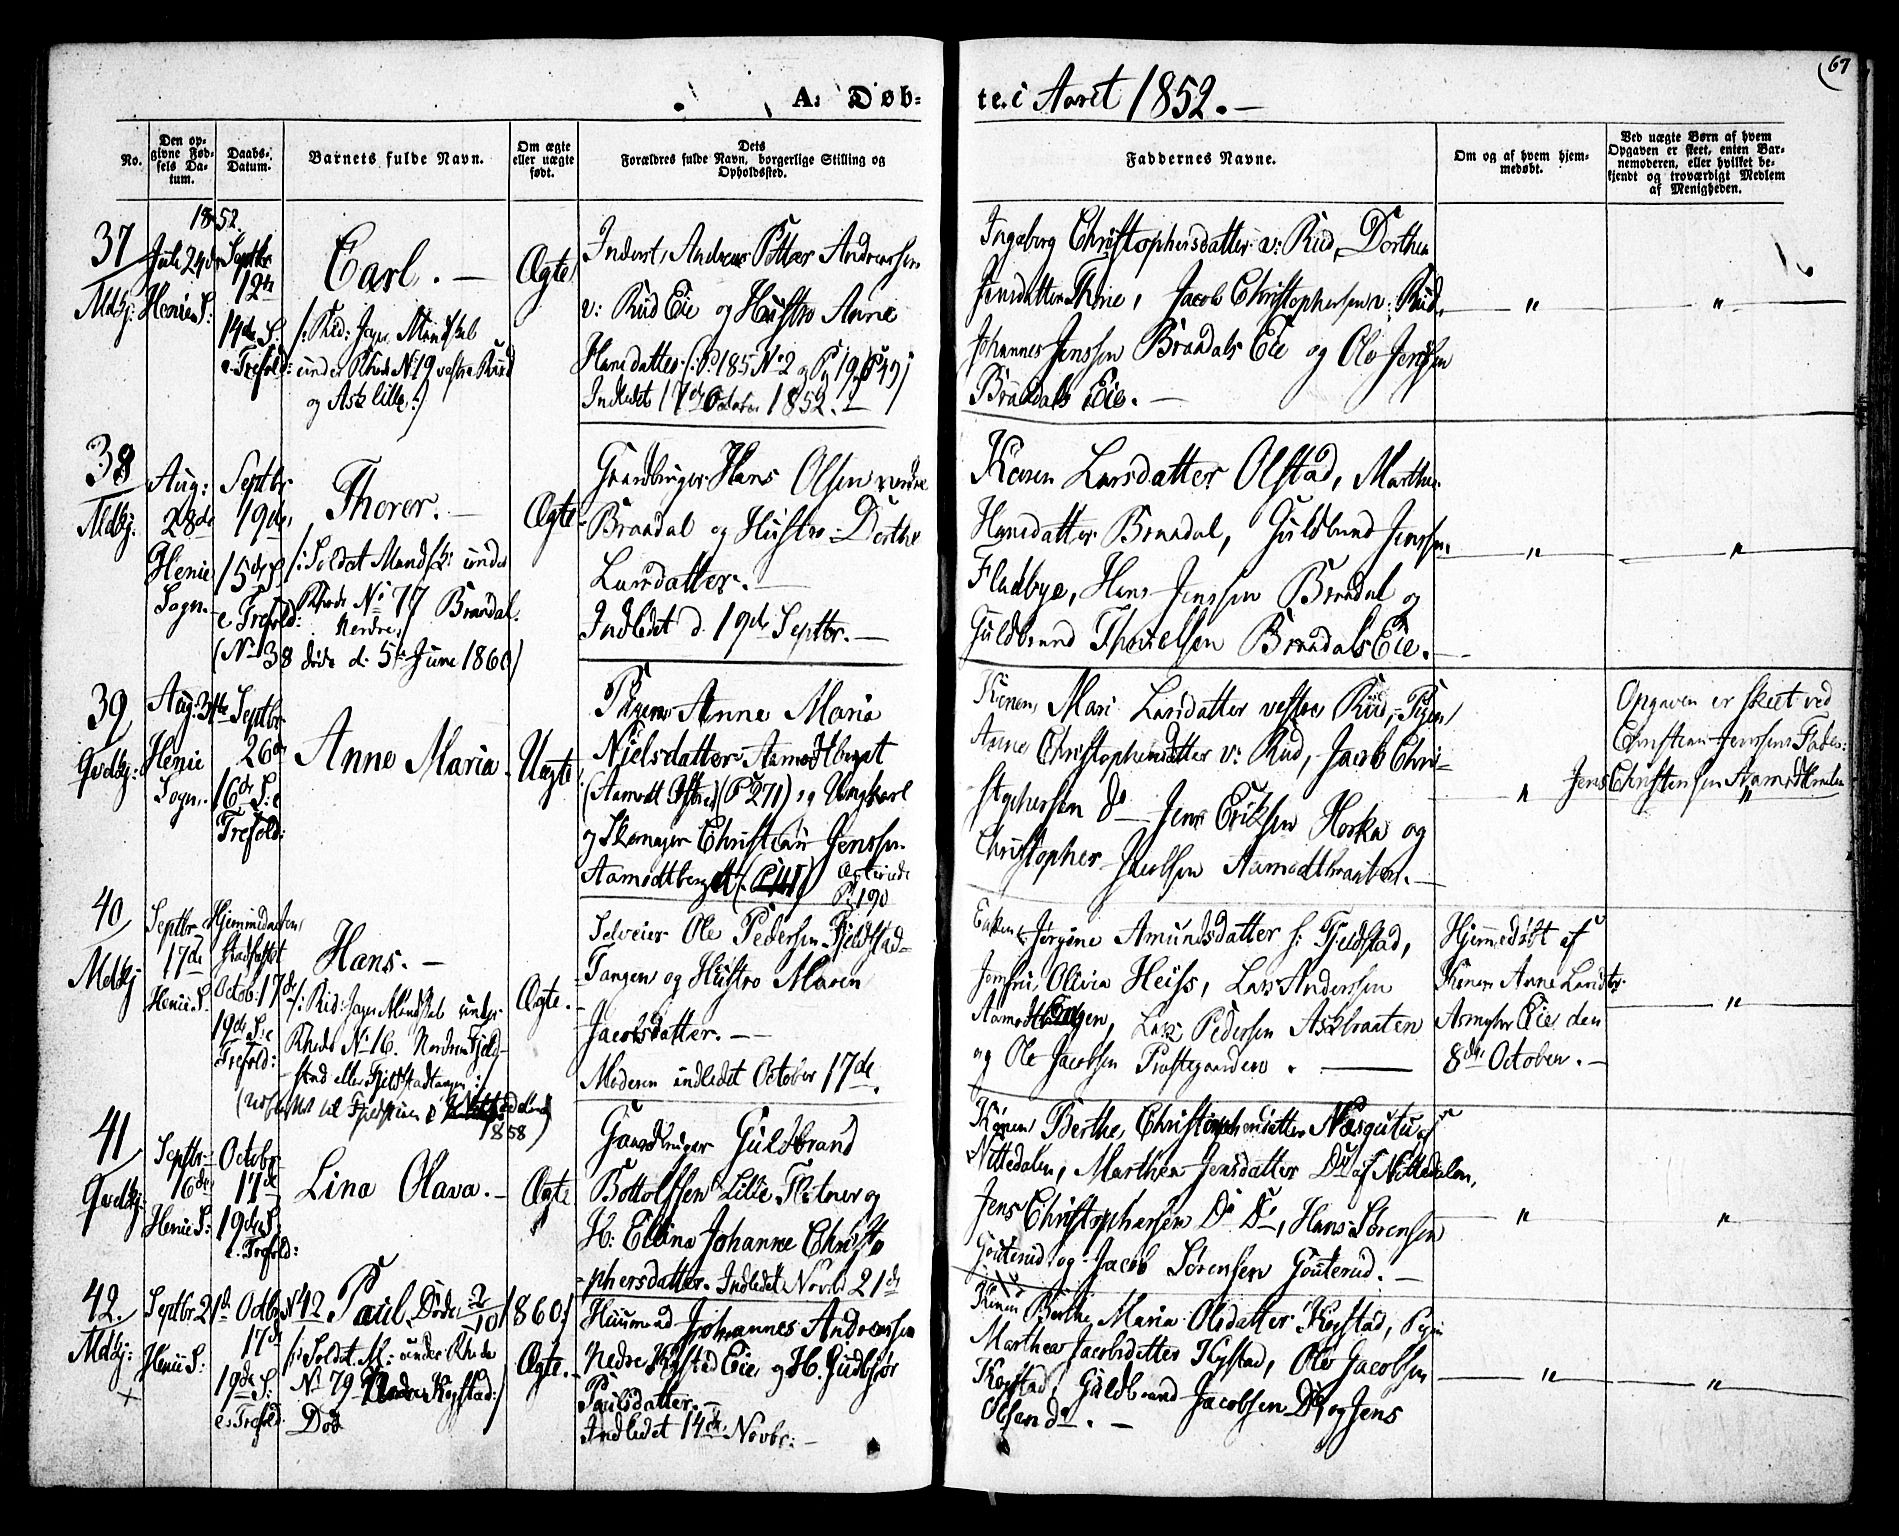 67
A: Døb-
te. i Aaret 1852. –
No.
Den op-
givne Fød-
sels Da-
tum.
Daabs-
Datum.
Barnets fulde Navn.
Om ægte
eller uægte
født.
Dets
Forældres fulde Navn, borgerlige Stilling og
Opholdssted.
Faddernes Navne.
Om og af hvem hjem-
medøbt.
Ved uægte Børn af hvem
Opgaven er skeet, enten Bar-
nemoderen, eller hvilket be-
kjendt og troværdigt Medlem
af Menigheden.
1852.
37
Mdkj:
Juli 24de
Henie S:
Septbr
12te
14de S:
e. Trefold:
Carl. –
under Rhode No 19 vestre Ruud
og Ask lille:)
Ægte
Inderst, Andreas Petter Andreassen
v: Rud Eie og Hustro Anne
Hansdatter
Indledet 17de October 1852. –
Ingeborg Christophersdatter v: Rud, Dorthea
Jensdatter Thrie, Jacob Christophersen v: Rud,
Johannes Jenssen Braadals Eie og Ole Jenssen
Braadals Eie. –
"
"
38
Mdkj.
Aug:
28de
Henie
Sogn.
Septbr
19de
15de S:
e Trefold:
Thorer. –
/: Soldat Mandsk: under
Rhode No 77 Braadal.
Nordre,
(No 38 døde d: 5te June 1860)
Ægte
Gaardbruger Hans Olsen nordre
Braadal og Hustro Dorthe
Larsdatter. –
Indledet d. 19de Septbr. –
Karen Larsdatter Olstad, Marthe
Hansdatter Braadal, Guldbrand Jenssen
Fladbye, Hans Jenssen Braadal og
Guldbrand Braadals Eie. –
"
"
39
Qvdkj:
Aug. 31te
Henie
Sogn.
Septbr
26de
16de S: e
Trefold:
Anne Maria.
Uægte
Pigen Anne Maria
Nielsdatter Aamodtberget
(Aamodt Østre) (P 271) og Ungkarl
og Skomager Christian Jenssen
Aamodtberget
P 190
Konen Mari Larsdatter vestre Rud, Pigen
Anne Christophersdatter v: Rud, Jacob Chri-
stophersen do – Jens Eriksen Horka og
Christopher Jacobsen Aamodtbraaten. –
"
Opgaven er skeet ved
Christian Jenssens Fader:
Jens Christensen
"
40
Mdkj
Septbr
17de
Henie S.
Hjemmedøbt
Stadfæstet
Octob: 17de
19de S: e
Trefold:
Hans. –
Rhode No 16. Nordre Fjeld-
stad eller Fjeldstadtangen:/
1858)
Ægte.
Selveier Ole Pedersen Fjeldstad-
Tangen og Hustro Maren
Jacobsdatter. –
Moderen indledet October 17de.
Enken Jørgine Amundsdatter s: Fjeldstad,
Jomfru Olivia Heiss, Lars Anderssen
Lars Pedersen Askbraaten
og Ole Jacobsen Prestegaarden. –
Hjemmedøbt af
Konen Anne Larsdtr.
Asmyhr Eie den
8de October. –
"
41
Qvdkj:
Septbr
16de
Henie S:
Octobr
17de
19de S:
e. Trefold:
Lina Olava. –
Ægte
Gaardbruger Guldbrand
Bottolfssen Lille Flotner og
H: Ellina Johanne Christo
phersdatter. Indledet Novb 21de
Konen Berthe Christophersdatter af
Nittedalen, Marthea Jensdatter Do af Nittedalen,
Jens Christophersen Do Do, Hans Sørensen
Gouterud og Jacob Sørensen Gouterud. –
"
"
42.
Mdkj:
+
Septbr 21de
Henie S:
Octbr
17de
19de S:
e: Trefold
No 42 Paul. Døde 2/10 1860.
/: Soldat M: under Rhode
No 79 Nedre Kogstad:/
Død
Ægte.
Huusmand Johannes Andreassen
Nedre Kogstad Eie og H. Gudbjør
Paulsdatter. –
Indledet 14de Novbr: –
Konen Berthe Maria Olsdatter Kogstad, Pigen
Marthea Jacobsdatter Kogstad, Ole Jacobsen
Kogstad, Guldbrand Jacobsen Do, og Jens
Olsen do. –
"
"